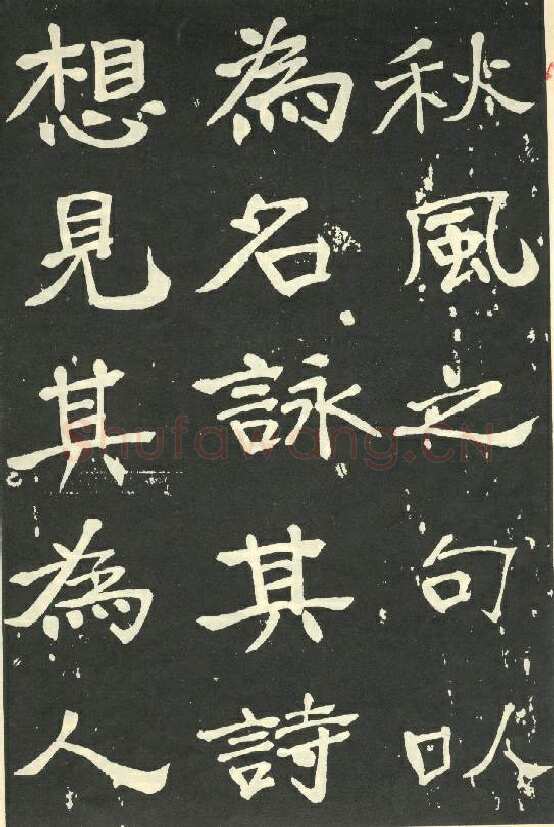 秋風之句以
為名詠其詩
想見其為人
shufawang.CN